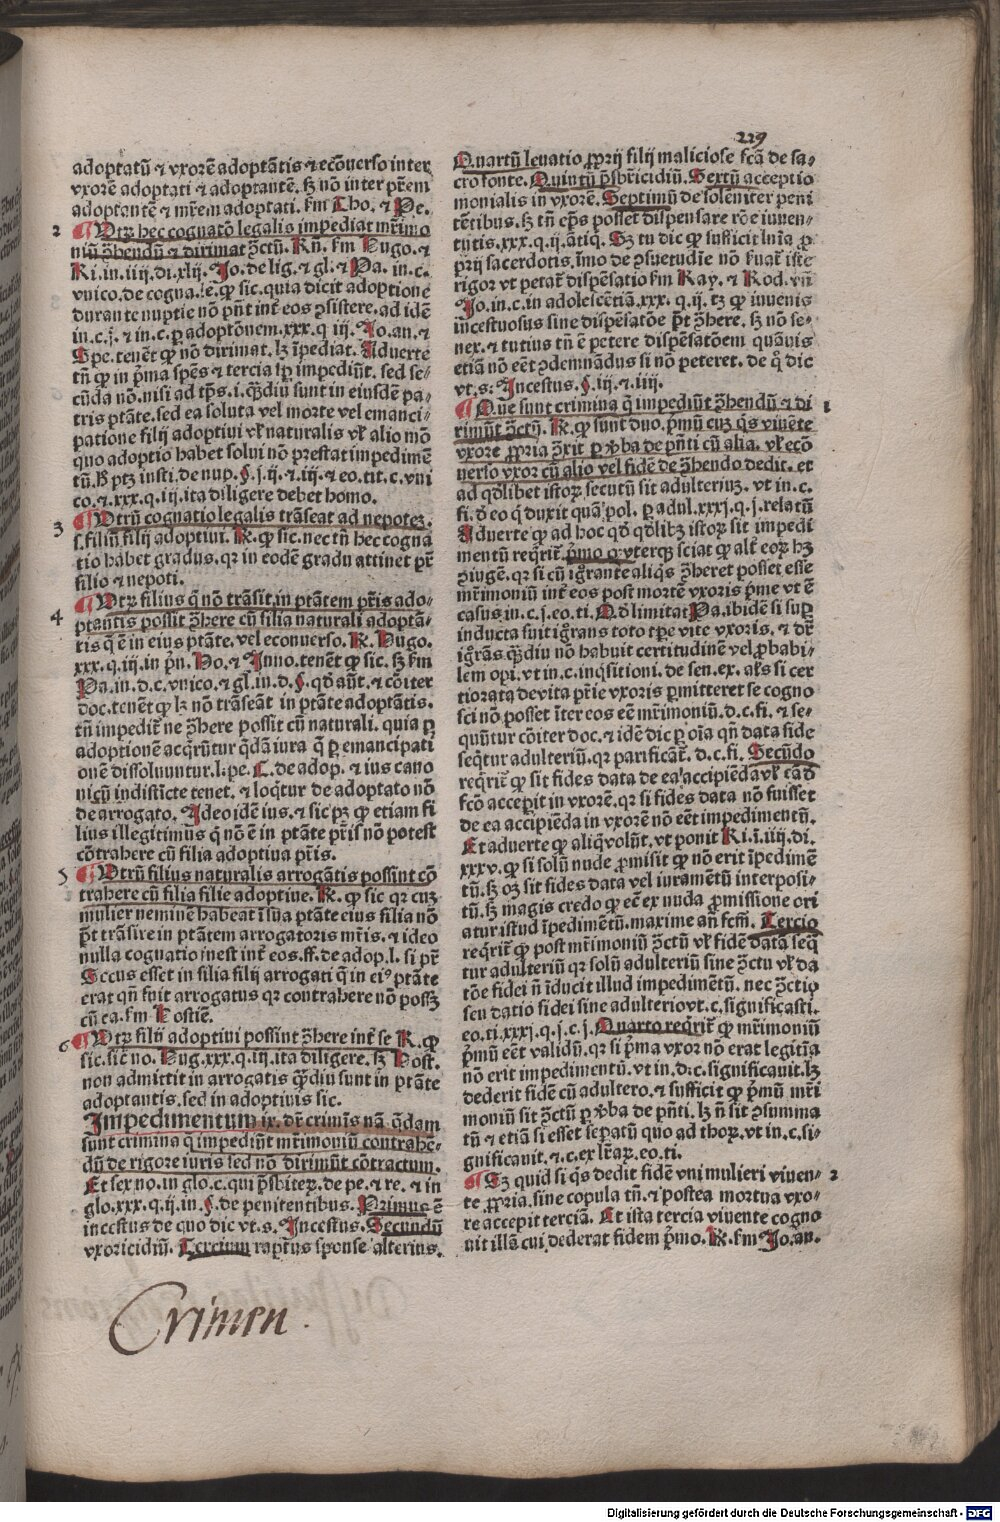 229
adoptatū ⁊ vxorē adoptātis ⁊ ecōuerso inter
vxorē adoptati ⁊ adoptantē. sꝫ nō inter p̄rem
adoptantē ⁊ mr̄em adoptati. ẜm Tho. ⁊ Pe.
2 ¶ Utꝝ hec cognatō legalis impediat mr̄imo
niū ꝯhendū ⁊ dirimat ꝯctū. Rn̄. ẜm Hugo. ⁊
Ri. in. iiij. di. xlij. Jo. de lig. ⁊ gl. ⁊ Pa. in. c.
vnico. de cogna. le. ꝙ sic. quia dicit adoptione
durante nuptie nō pn̄t int̄ eos ꝯsistere. ad idē
in. c. j. ⁊ in. c. ꝑ adoptōnem. xxx. q iij. Jo. an. ⁊
Spe. tenēt ꝙ nō dirimat. lꝫ īpediat. Aduerte
tn̄ ꝙ in p̄ma spēs ⁊ tercia sꝑ impediūt. sed se⸗
cūda nō. nisi ad tp̄s. i. qͣdiu sunt in eiusdē pa⸗
tris ptāte. sed ea soluta vel morte vel emanci⸗
patione filij adoptiui vl̓ naturalis vl̓ alio mō
quo adoptio habet solui nō prestat impedimē
tū. vt ptꝫ insti. de nup. §. j. ij. ⁊ iij. ⁊ eo. tit. c. vni
co. ⁊. xxx. q. iij. ita diligere debet homo.
3 ¶ Utrū cognatio legalis trāseat ad nepoteꝫ.
s. filiū filij adoptiui. R̄. ꝙ sic. nec tn̄ hec cogna
tio habet gradus. qꝛ in eodē gradu attinet pr̄
filio ⁊ nepoti.
4 ¶ Utꝝ filius q̄ nō trāsit in ptātem pr̄is ado⸗
ptantis possit ꝯhere cū filia naturali adoptā⸗
tis q̄ ē in eius ptāte. vel econuerso. R̄. Hugo.
xxx. q. iij. in pn̄. Ho. ⁊ Inno. tenēt ꝙ sic. sꝫ ẜm
Pa. in. d. c. vnico. ⁊ gl. in. d. §. qd̓ aūt. ⁊ cōiter
doc. tenēt ꝙ lꝫ nō trāseāt in ptāte adoptātis.
tn̄ impedit̄ ne ꝯhere possit cū naturali. quia ꝑ
adoptionē acq̄rūtur q̄dā iura q̄ ꝑ emancipati
onē dissoluuntur. l. pe. C. de adop. ⁊ ius cano
nicū indistīcte tenet. ⁊ loq̄tur de adoptato nō
de arrogato. Adeo idē ius. ⁊ sic pꝫ ꝙ etiam fi
lius illegitimus q̄ nō ē in ptāte pr̄is nō potest
cōtrahere cū filia adoptiua pr̄is.
5 ¶ Utrū filius naturalis arrogātis possint cō
trahere cū filia filie adoptiue. R̄. ꝙ sic qꝛ cuꝫ
mulier neminē habeat ī sua ptāte eius filia nō
p̄t trāsire in ptātem arrogatoris mr̄is. ⁊ ideo
nulla cognatio inest int̄ eos. ff. de adop. l. si pr̄
Secus esset in filia filij arrogati q̄ in eiꝰ ptāte
erat qn̄ fuit arrogatus qꝛ contrahere nō possꝫ
cū ea. ẜm Hostiē.
6 ¶ Utꝝ filij adoptiui possint ꝯhere int̄ se R̄. ꝙ
sic. sic̄ no. Hug. xxx. q. iij. ita diligere. sꝫ Host.
non admittit in arrogatis qͣdiu sunt in ptāte
adoptantis. sed in adoptiuis sic.
Impedimentum ix. dr̄ crimīs nā q̄dam
sunt crimina q̄ impediūt mr̄imoniū contrahē⸗
dū de rigore iuris sed nō dirimūt cōtractum.
Et sex no. in glo. c. qui p̄sbiteꝝ. de pe. ⁊ re. ⁊ in
glo. xxx. q. ij. in. §. de penitentibus. Primus ē
incestus de quo dic vt. s. Incestus. Secundū
vxoricidiū. Tercium raptus sponse alterius.
Quartū leuatio ꝓprij filij maliciose fcā de sa⸗
cro fonte. Quintū p̄sbricidiū. Sextū acceptio
monialis in vxorē. Septimū de solēniter peni
tētibus. sꝫ tn̄ ep̄s posset dispensare rōe iuuen⸗
tutis. xxx. q. ij. ātiq̄. Sꝫ tu dic ꝙ sufficit lnīa ꝓ
prij sacerdotis. īmo de ꝯsuetudīe nō ẜuat̄ iste
rigor vt petat̄ dispēsatio ẜm Ray. ⁊ Rod. vn̄
Jo. in. c. in adolescētiā. xxx. q. ij. tꝫ ꝙ iuuenis
incestuosus sine dispēsatōe p̄t ꝯhere. sꝫ nō se⸗
nex. ⁊ tutius tn̄ ē petere dispēsatōem quāuis
etiā nō eēt ꝯdemnādus si nō peteret. de q̄ dic
vt. s. Incestus. §. iij. ⁊. iiij.
¶ Que sunt crimina q̄ impediūt ꝯhendū ⁊ di 1
rimūt ꝯctū. R̄. ꝙ sunt duo. p̄mū cuꝫ q̄s viuēte
vxore ꝓpria ꝯxit ꝑ v̓ba de pn̄ti cū alia. vl̓ ecō
uerso vxor cū alio vel fidē de ꝯhendo dedit. et
ad qd̓libet istoꝝ secutū sit adulteriuꝫ. vt in. c.
fi. d̓ eo q̄ duxit quā pol. ꝑ adul. xxxj. q. j. relatū
Aduerte ꝙ ad hoc qd̓ qd̓libꝫ istoꝝ sit impedi
mentū req̄rit̄. p̄mo ꝙ vterqꝫ sciat ꝙ alt̄ eoꝝ hꝫ
ꝯiugē. qꝛ si cū igrāte aliq̄s ꝯheret posset esse
mr̄imoniū int̄ eos post mortē vxoris p̄me vt ē
casus in. c. j. eo. ti. Qd̓ limitat Pa. ibidē si suꝑ
inducta fuit igrans toto tp̄e vite vxoris. ⁊ dr̄
igrās. qͣdiu nō habuit certitudinē vel ꝓbabi⸗
lem opi. vt in. c. inq̄sitioni. de sen. ex. al̓s si cer
tiorata de vita p̄rie vxoris ꝑmitteret se cogno
sci nō posset īter eos eē mr̄imoniū. d. c. fi. ⁊ se⸗
quūtur cōiter doc. ⁊ idē dic ꝑ oīa qn̄ data fide
seq̄tur adulteriū. qꝛ parificāt̄. d. c. fi. Secūdo
req̄rit̄ ꝙ sit fides data de ea accipiēda vl̓ ca d̓
fcō acceperit in vxorē. qꝛ si fides data nō fuisset
de ea accipiēda in vxorē nō eēt impedimentū.
Et aduerte ꝙ aliq̄ volūt. vt ponit Ri. ī. iiij. di.
xxxv. ꝙ si solū nude ꝓmisit ꝙ nō erit īpedimē
tū. sꝫ oꝫ sit fides data vel iuramētū interposi⸗
tū. sꝫ magis credo ꝙ eē ex nuda ꝓmissione ori
atur istud īpedimētū. maxime an̄ fcm̄. Tercio
req̄rit̄ ꝙ post mr̄imoniū ꝯctū vl̓ fidē data seq̄
tur adulteriū qꝛ solū adulteriū sine ꝯctu vl̓ da
tōe fidei n̄ īducit illud impedimētū. nec ꝯctio
seu datio fidei sine adulterio vt. c. significasti.
eo. ti. xxxj. q. j. c. j. Quarto req̄rit̄ ꝙ mr̄imoniū
p̄mū eēt validū. qꝛ si p̄ma vxor nō erat legitīa
nō erit impedimentū. vt in. d. c. significauit. lꝫ
dederit fidē cū adultero. ⁊ sufficit ꝙ p̄mū mr̄i
moniū sit ꝯctū ꝑ v̓ba de pn̄ti. lꝫ n̄ sit ꝯsumma
tū ⁊ etiā si esset seꝑatū quo ad thoꝝ. vt in. c. si⸗
gnificauit. ⁊. c. ex lr̄aꝝ. eo. ti.
¶ Sꝫ quid si q̄s dedit fidē vni mulieri viuen⸗ 2
te ꝓpria. sine copula tn̄. ⁊ postea mortua vxo⸗
re accepit terciā. Et ista tercia viuente cogno
uit illā cui dederat fidem p̄mo. R̄. ẜm Jo. an.
Crimen.
Digitalisierung gefördert durch die Deutsche Forschungsgemeinschaft - DFG